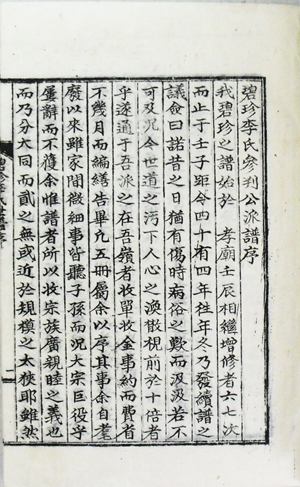 碧珍李氏參判公派譜序
我碧珍之譜始於　孝廟壬辰相繼增修者六七次
而止于壬子距今四十有四年往年冬乃發續譜之
議僉曰諾昔之日猶有傷時病俗之歎而汲汲若不
可及況今世道之污下人心之渙散視前於十倍者
乎遂通于吾派之在吾嶺者收單收金事約而費省
不幾月而編繕告畢凡五冊屬余以序其事余自耄
廢以來雖家間微細事皆聽子孫而況大宗巨役乎
屢辭而不獲余惟譜者所以收宗族廣親睦之義也
而乃分大同而貳之無或近於規模之太狹耶雖然